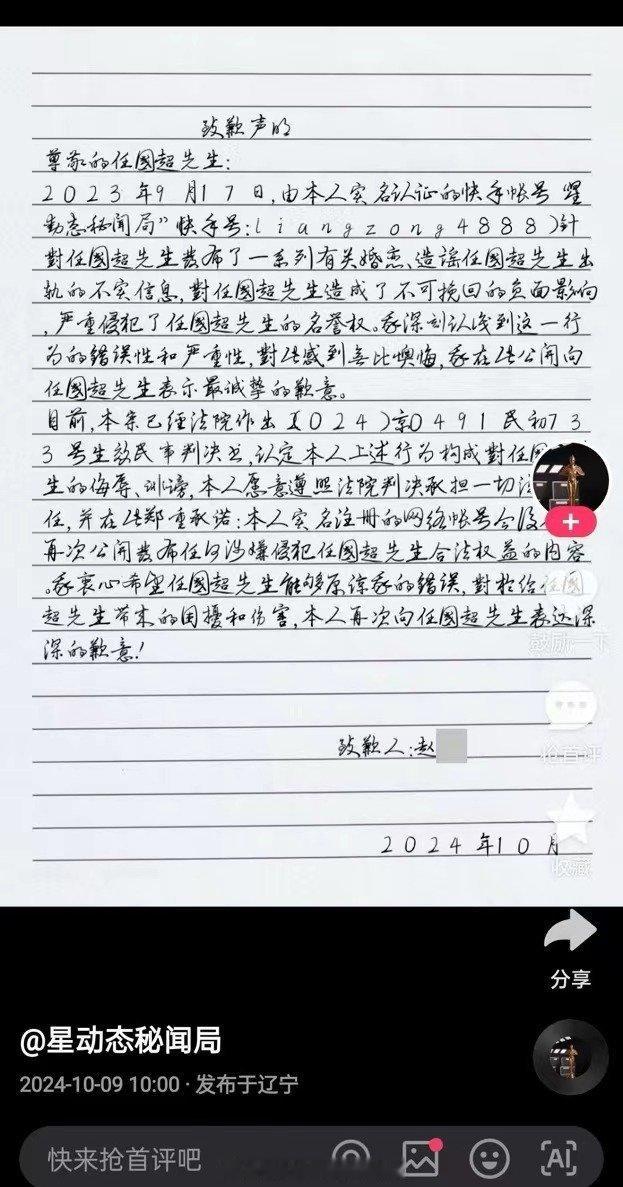 致歉声明
尊敬的任國超先生：
2023年9月17日，由本人实名认证的快手帐号"星
動态秘闻局"快手号：liangzong4888）针
對任國超先生发布了一系列有关婚恋、造谣任國超先生出
轨的不实信息，對任國超先生造成了不可挽回的负面影响
，严重侵犯了任國超先生的名誉权。我深刻认识到这一行
为的错误性和严重性，對此感到无比懊悔，我在此公開向
任國超先生表示最诚挚的歉意。
目前，本案已经法院作出（2024）京0491民初73
3号生效民事判决书，认定本人上述行为构成對任國
生的侮辱、诽谤，本人愿意遵照法院判决承担一切法
任，并在此郑重承诺：本人实名注册的网络帐号今后
再次公開发布任何涉嫌侵犯任國超先生合法权益的内容
。我衷心希望任國超先生能够原谅我的错误，對於给任國
超先生带来的困扰和伤害，本人再次向任國超先生表达深
深的歉意！
致歉人：赵
2024年10月
鼓励一下
抢首评
收藏
分享
@星动态秘闻局
2024-10-09 10:00 · 发布于辽宁
快来抢首评吧
AI